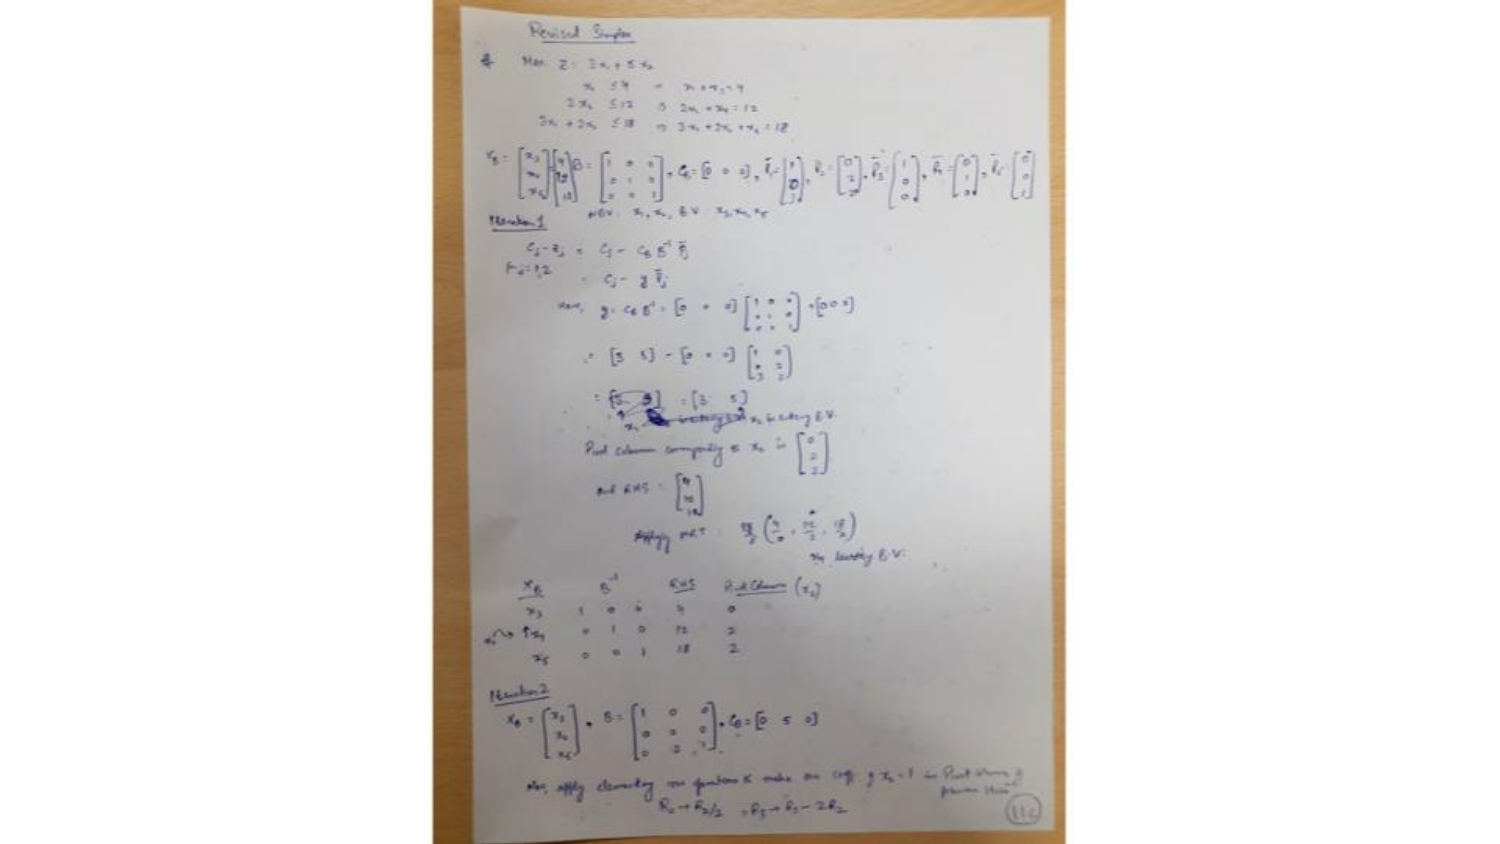 Revised Simplex
Max. Z = 3x₁ + 5x₂
x₁ ≤ 4 ⇒ x₁ + x₃ = 4
2x₂ ≤ 12 ⇒ 2x₂ + x₄ = 12
3x₁ + 2x₂ ≤ 18 ⇒ 3x₁ + 2x₂ + x₅ = 18
X_B = [x₃ x₄ x₅] = [4 12 18] B = [1 0 0; 0 1 0; 0 0 1], C_B = [0 0 0], P̄₁ = [1 0 3], P̄₂ = [0 2 2], P̄₃ = [1 0 0], P̄₄ = [0 1 0], P̄₅ = [0 0 1]
NBV: x₁, x₂, BV: x₃, x₄, x₅
Iteration 1
C_j - Z_j = C_j - C_B B⁻¹ P̄_j
For j = 1,2
= C_j - y P̄_j
Here, y = C_B B⁻¹ = [0 0 0] [1 0 0; 0 1 0; 0 0 1] = [0 0 0]
= [3 5] - [0 0 0] [1 0; 0 2; 3 2]
= [3 5] = [3 5]
x₂ is entering B.V.
Pivot column x₂ is [0 2 2]
and RHS = [4 12 18]
Applying MRT: (4/0, 12/2, 18/2)
x₄ leaving B.V.
X_B B⁻¹ RHS Pivot Column (x₂)
x₃ 1 0 0 4 0
x₄ 0 1 0 12 2
x₅ 0 0 1 18 2
Iteration 2
X_B = [x₃ x₂ x₅], B = [1 0 0; 0 2 0; 0 2 1], C_B = [0 5 0]
Now, apply elementary row operations to make coeff of x₂ = 1 in Pivot column of
R₂ → R₂/2, R₃ → R₃ - 2R₂